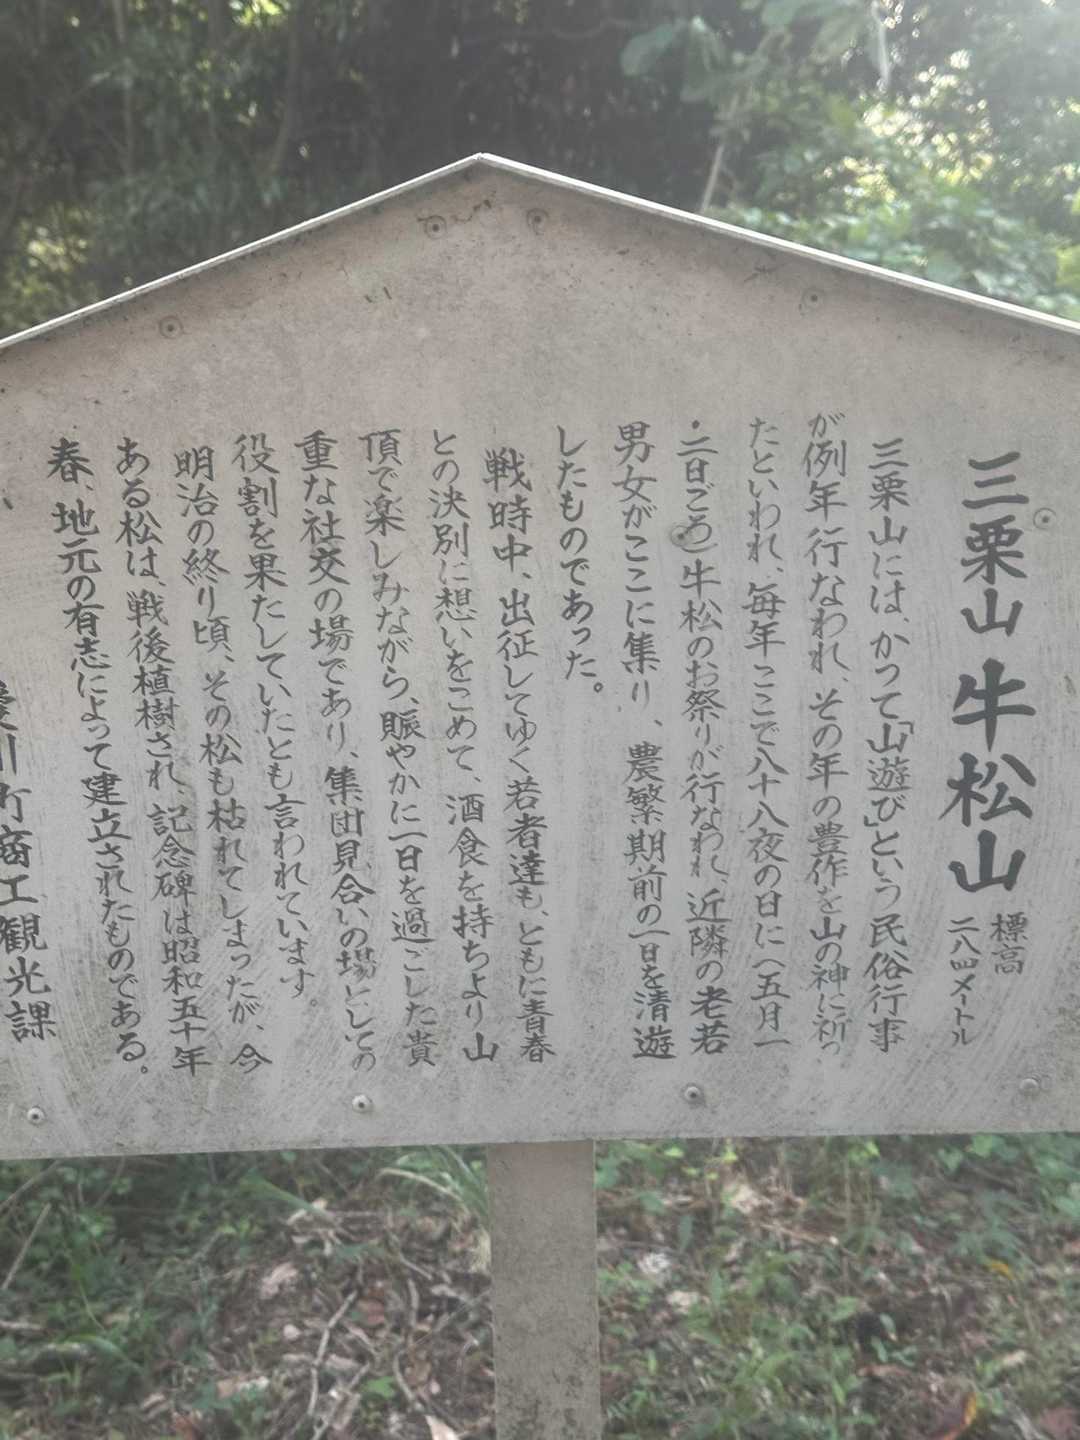 三栗山 牛松山 標高 二八四メートル
三栗山には、かつて「山遊び」という民俗行事
が例年行なわれ、その年の豊作を山の神に祈っ
たといわれ、毎年ここで八十八夜の日に（五月一
・二日ごろ）牛松のお祭りが行なわれ、近隣の老若
男女がここに集り、農繁期前の一日を清遊
したものであった。
戦時中、出征してゆく若者達も、ともに青春
との決別に想いをこめて、酒食を持ちより山
頂で楽しみながら、賑やかに一日を過ごした貴
重な社交の場であり、集団見合いの場としての
役割を果たしていたとも言われています。
明治の終り頃、その松も枯れてしまったが、今
ある松は、戦後植樹され、記念碑は昭和五十年
春、地元の有志によって建立されたものである。
愛川町商工観光課